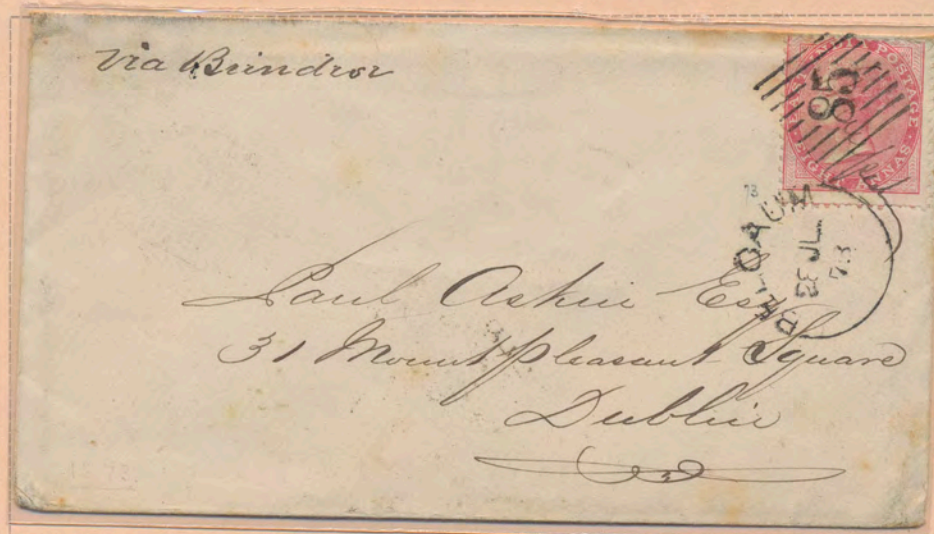 Via Brindisi
EAST INDIA POSTAGE
EIGHT ANNAS
85
73
BELGAUM
28 JL
73
Paul Askin Esq
31 Mountpleasant Square
Dublin